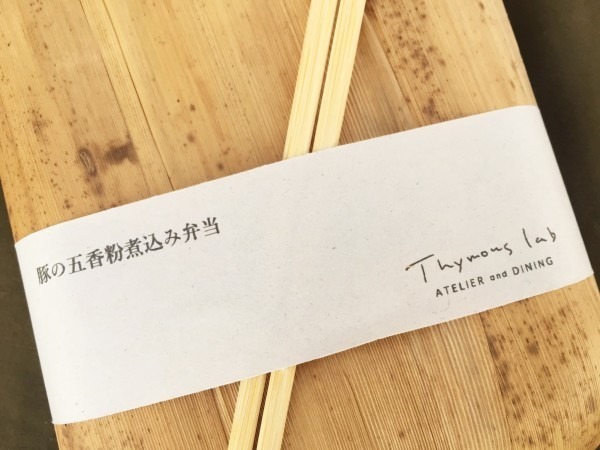 豚の五香粉煮込み弁当
Thymons lab
ATELIER and DINING